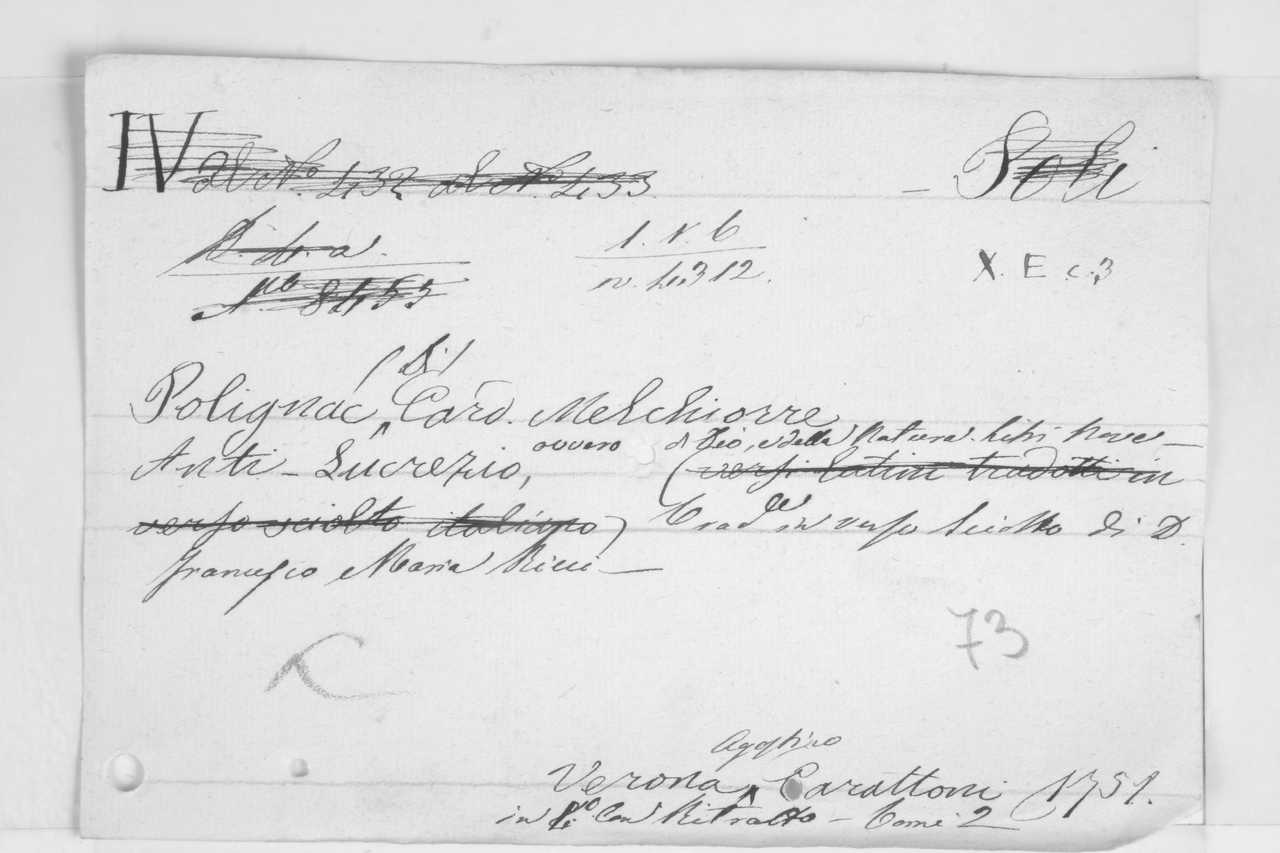 IV dal No. 432 al No. 433. - Poli
D. 4. a. 1. V. 6 X. E c. 3
No. 8453 n. 4312.
(di)
Polignac, Card. Melchiorre
Anti-Lucrezio, ovvero di Dio, e della Natura. Libri Nove —
(versi latini tradotti in
verso sciolto italiano) Trad.e in verso sciolto di D.
Francesco Maria Ricci —
73
Agostino
Verona, Carattoni 1751.
in 4.o Con Ritratto - Tomi 2